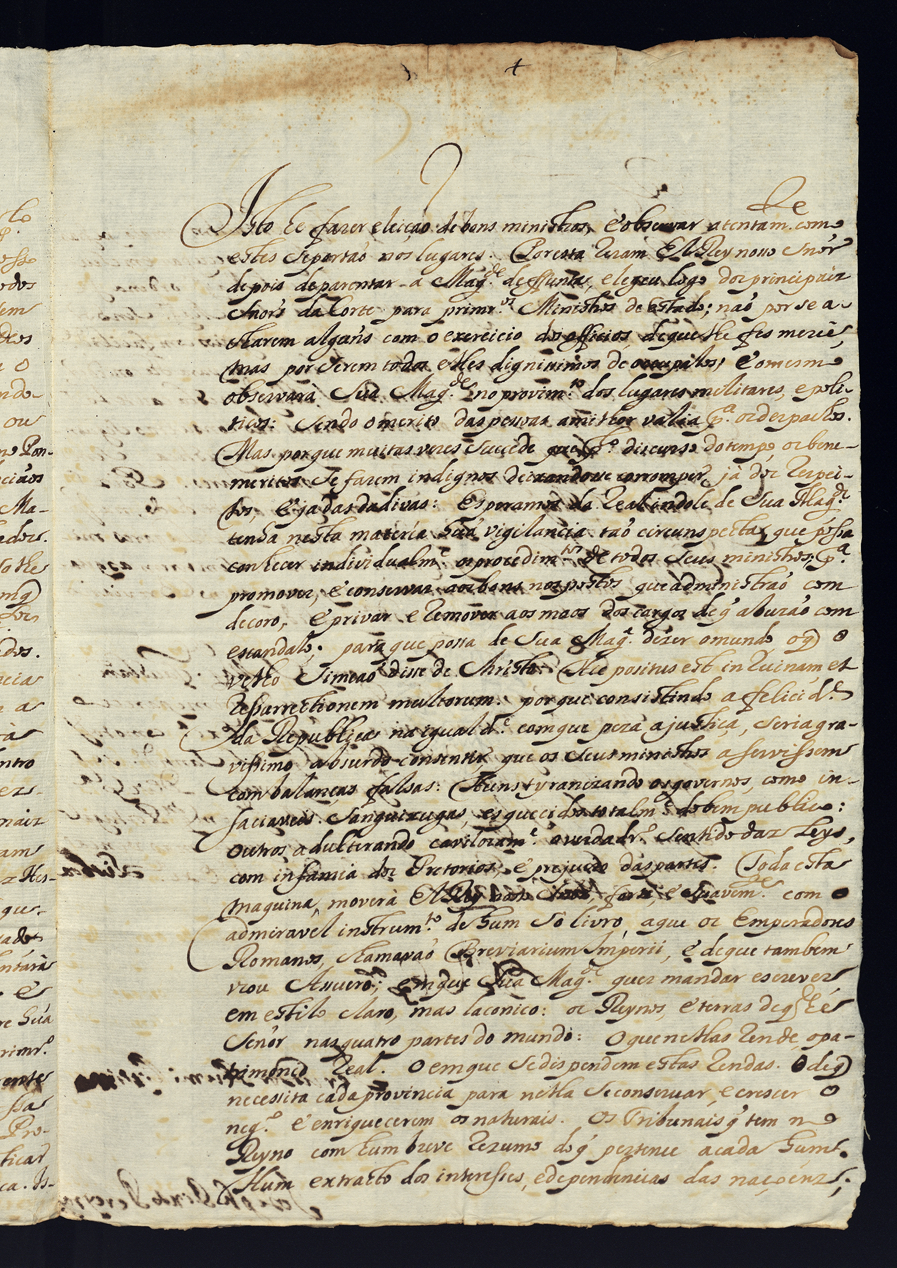 4
Isto he fazer eleição de bons ministros, e observar atentam.te como
estes se portaõ nos lugares. Por esta rezam El Rey nosso Snõr
depois de parentar a Mag.de deffunta, elegeu logo dos principais
Snõrs da Corte para primr.os Ministros de Estado; não por se a-
charem alguns com o exercicio dos officios de que lhe fes mercê,
mas por serem todos elles dignissimos de occupalos, e o mesmo
observarà Sua Mag.de no provim.to dos lugares militares, e poli-
ticos: sendo o merito das pessoas a milhor valia p.a os despachos.
Mas porque muitas vezes succede que p.lo discurso do tempo os bene-
meritos se fazem indignos deixandose corromper, já dos respei-
tos, e ja das dadivas: esperamos da Real indole de Sua Mag.de
tenha nesta materia huã vigilancia taõ circunspecta, que possa
conhecer individualm.te os procedim.tos de todos seus ministros, p.a
promover, e conservar aos bons nos postos que administraõ com
decoro, e privar e remover aos maos dos cargos de q̃ abuzaõ com
escandalo; para que possa de Sua Mag.de dizer o mundo o q̃ o
velho Simeaõ disse de Christo: Hic positus est in ruinam et
resurrectionem multorum: porque consistindo a felicid.e
da Republica na igual d.e com que peza a justiça, seria gra-
vissimo absurdo consentir que os seus ministros a servissem
com balanças falsas: Huns tyranizando os governos, como in-
saciaveis sanguixugas esquecidos totalm.te do bem publico:
Outros adulterando cavilozam.te o verdadr.o sentido das Leys,
com infamia dos Pretorios, e prejuizo das partes. Toda esta
maquina, moverà El Rey nosso Snõr, facil, e suavem.te com o
admiravel instrum.to de hum só livro, a que os Emperadores
Romanos, chamavaõ Breviarium Imperii, e de que tambem
uzou Assuero; em que Sua Mag.de quer mandar escrever
em estilo claro, mas laconico: os Reynos, e terras de q̃ hé
Senõr nas quatro partes do mundo: O que nellas rende o pa-
trimonio Real. O em que se dispendem estas rendas. O de q̃
necessita cada provincia para nella se conservar, e crescer o
neg.o e enriquecerem os naturais. Os Tribunais q̃ tem no
Reyno com hum breve rezumo do q̃ pertence a cada hum.
Hum extracto dos interesses, e dependencias das naçoenz;